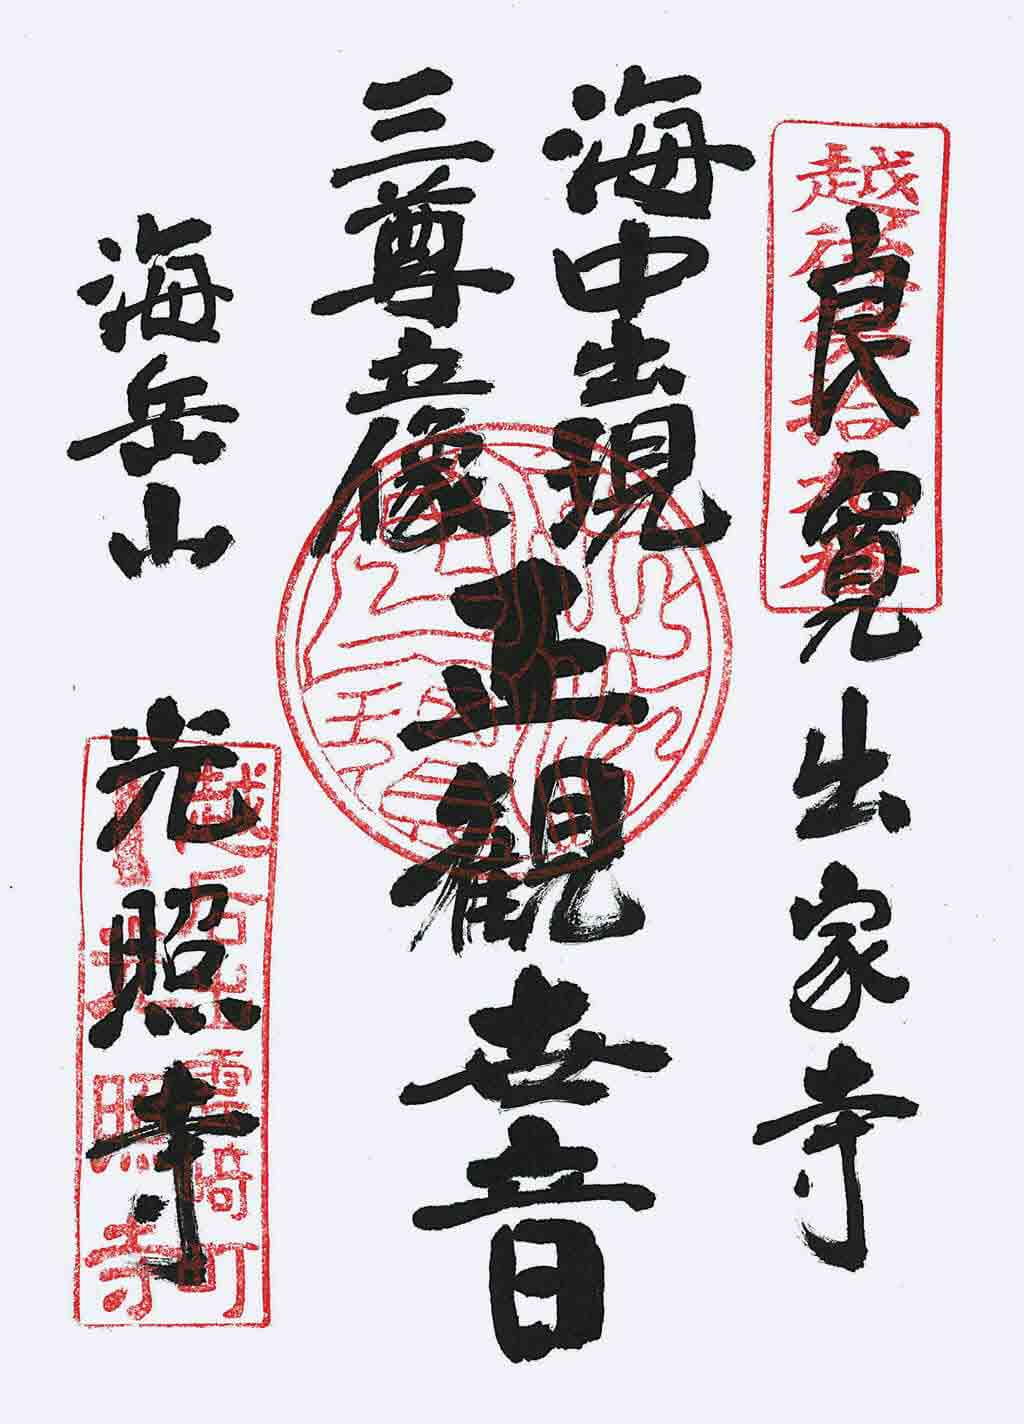 越後 拾 番
良寛出家寺
海中出現
三尊立像
正観世音
海岳山 光照寺
越后出雲崎町
光照寺